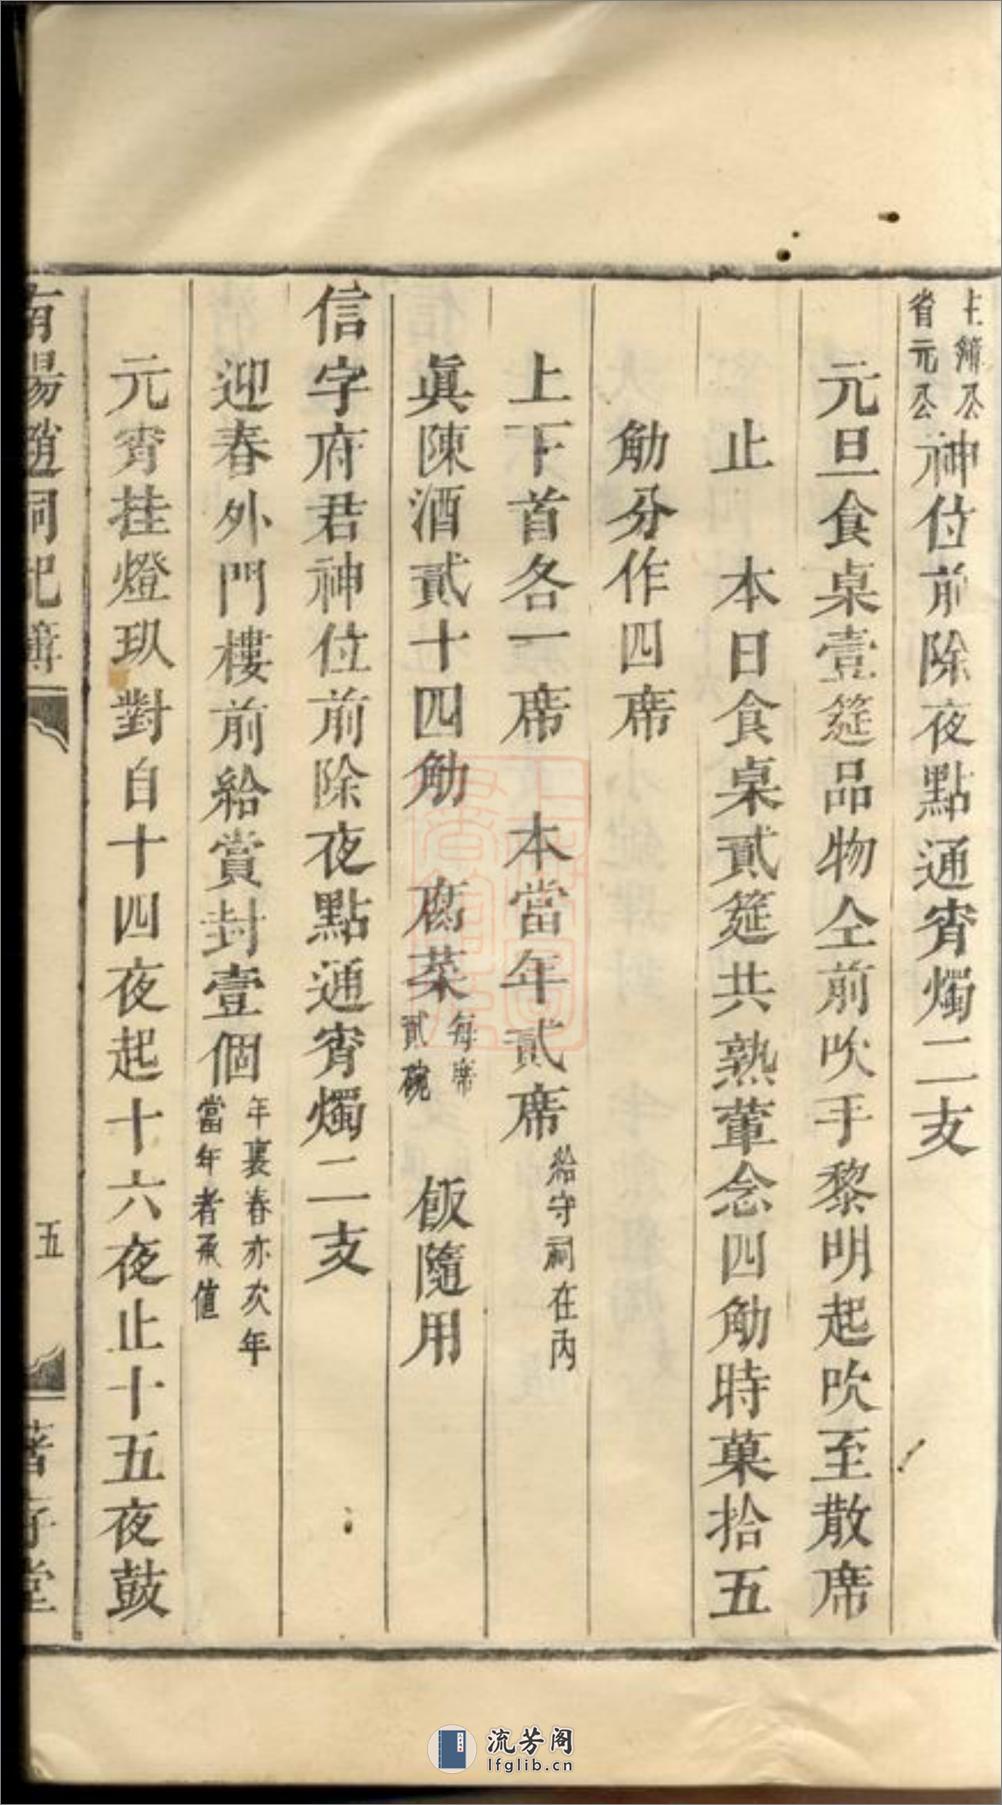 主簿公
省元公神位前除夜點通宵燭二支
元旦食桌壹筵品物仝前吹手黎明起吹至散席
止　本日食桌貳筵共熟葷念四觔時菓拾五
觔分作四席
上下首各一席　本當年貳席給守祠在內
眞陳酒貳十四觔　腐菜每席貳碗　飯隨用
信字府君神位前除夜點通宵燭二支
迎春外門樓前給賞封壹個年裏春亦次年當年者承值
元宵挂燈玖對自十四夜起十六夜止十五夜鼓
南陽趙祠祀簿
五
著存堂
流芳阁
lfglib.cn